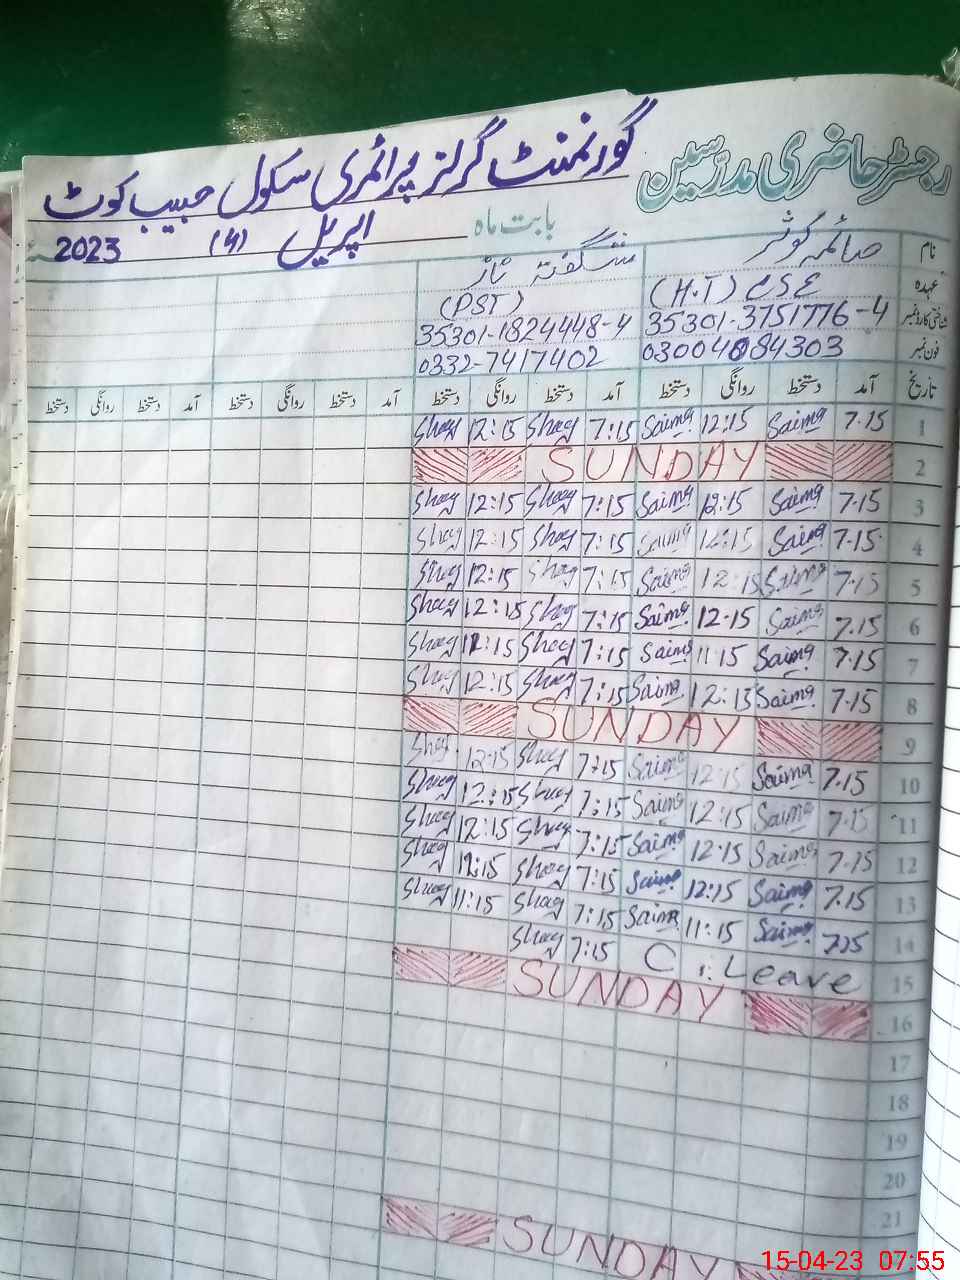 رجسٹر حاضری مدرسین گورنمنٹ گرلز پرائمری سکول حبیب کوٹ
بابت ماہ اپریل (4) 2023ء
نام صائمہ کوثر شگفتہ ناز
عہدہ (H.T) ESE (PST)
شناختی کارڈ نمبر 35301-3751776-4 35301-1824448-4
فون نمبر 03004084303 0332-7417402
تاریخ آمد دستخط روانگی دستخط آمد دستخط روانگی دستخط آمد دستخط روانگی دستخط آمد دستخط روانگی دستخط
1 7.15 Saima 12:15 Saima 7:15 Shag 12:15 Shag
2 SUNDAY
3 7.15 Saima 12:15 Saima 7:15 Shag 12:15 Shag
4 7.15 Saima 12:15 Saima 7:15 Shag 12:15 Shag
5 7.15 Saima 12:15 Saima 7:15 Shag 12:15 Shag
6 7.15 Saima 12.15 Saima 7:15 Shag 12:15 Shag
7 7.15 Saima 11:15 Saima 7:15 Shag 12:15 Shag
8 7.15 Saima 12:15 Saima 7:15 Shag 12:15 Shag
9 SUNDAY
10 7.15 Saima 12:15 Saima 7:15 Shag 12:15 Shag
11 7.15 Saima 12:15 Saima 7:15 Shag 12:15 Shag
12 7.15 Saima 12:15 Saima 7:15 Shag 12:15 Shag
13 7.15 Saima 12:15 Saima 7:15 Shag 12:15 Shag
14 7.15 Saima 11:15 Saima 7:15 Shag 11:15 Shag
15 C. Leave 7:15 Shag
16 SUNDAY
17
18
19
20
21
SUNDAY
15-04-23 07:55